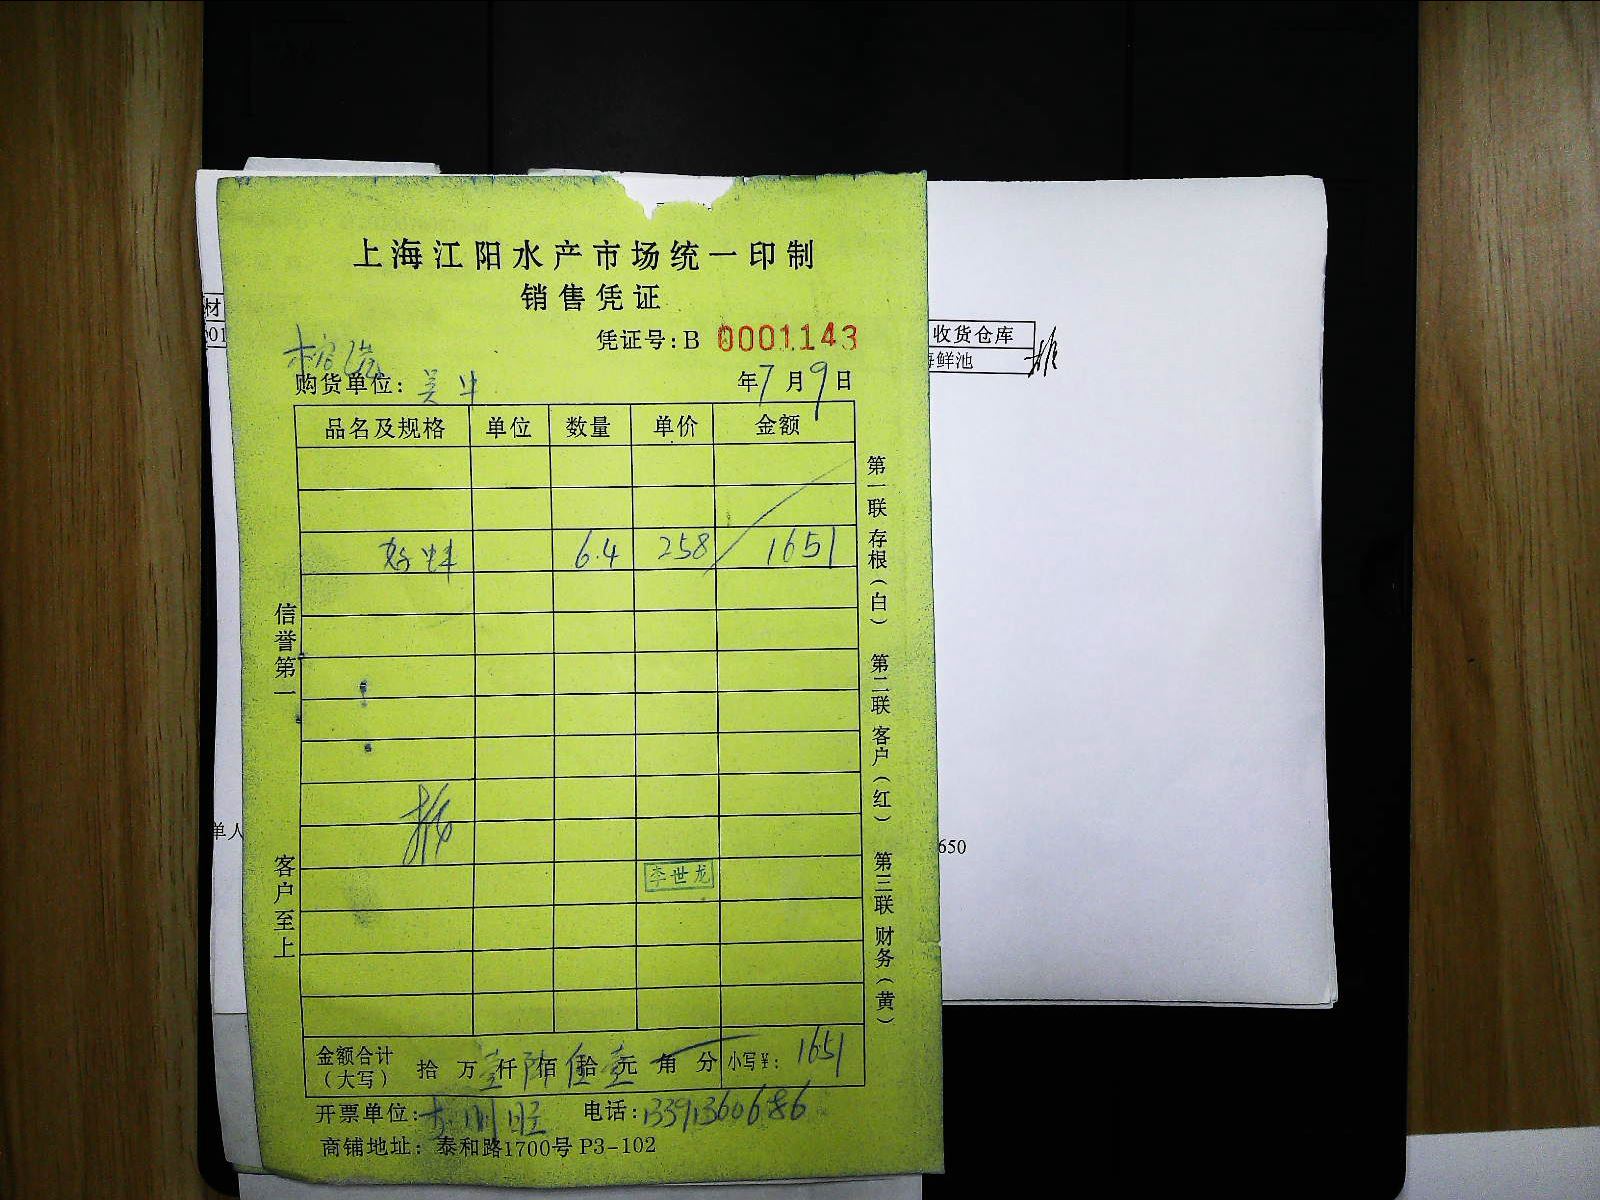 上海江阳水产市场统一印制
销售凭证
凭证号:B 0001143
购货单位:
年7月9日
品名及规格 单位 数量 单价 金额
6.4 258 1651
信誉第一
客户至上
李世龙
第一联 存根(白) 第二联 客户(红) 第三联 财务(黄)
金额合计(大写) 拾 万壹仟陆佰伍拾壹元 角 分 小写¥: 1651
开票单位: 电话:13391360686
商铺地址:泰和路1700号 P3-102
材
01
收货仓库
海鲜池
单人
650